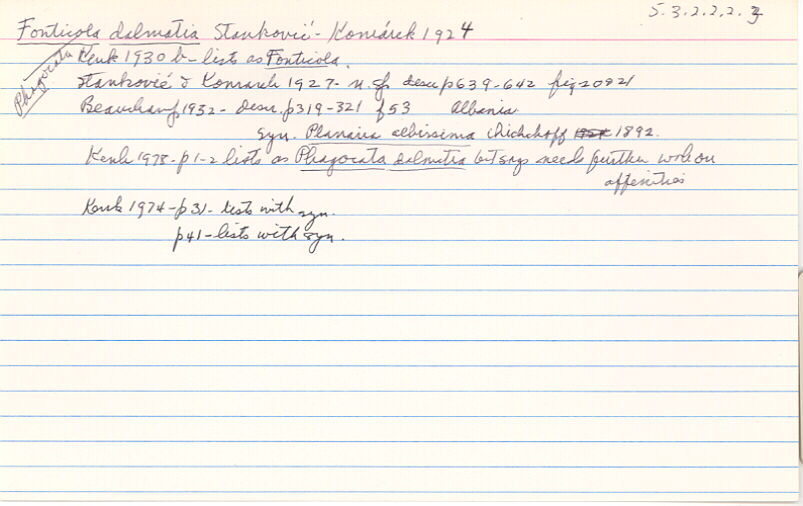 5.3.2.2.2.3
Fonticola dalmatia Stanković - Komárek 1924
Phagocata
Kenk 1930 b - lists as Fonticola.
Stanković & Komarek 1927 - n.sp descr p639-642 fig 20&21
Beauchamp 1932 - descr. p319-321 f53 Albania
Syn. Planaria albissima Chichkoff 1892.
Kenk 1978 - p1-2 lists as Phagocata dalmatia but says needs further work on
affinities
Kenk 1974 - p31 - lists with syn.
p41 - lists with syn.